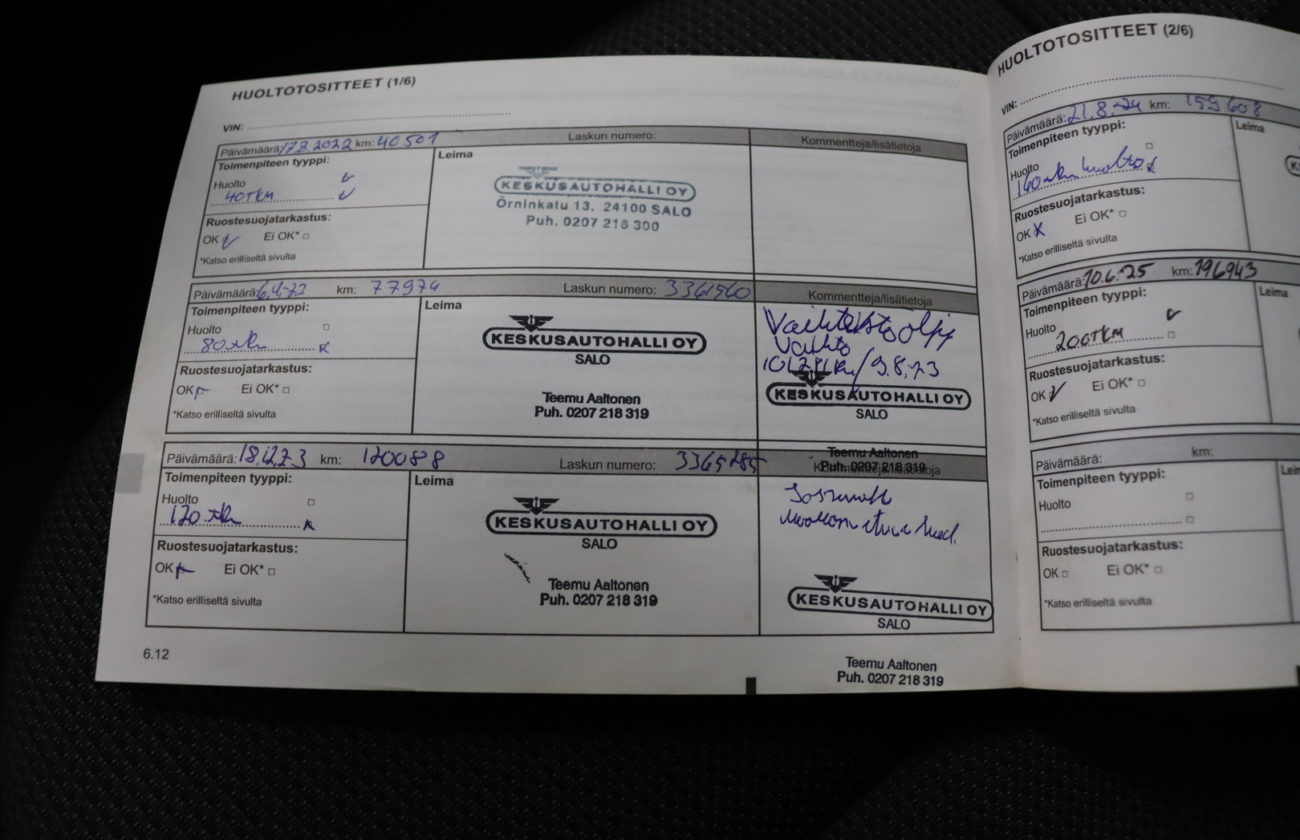 HUOLTOTOSITTEET (1/6)
VIN:
Päivämäärä: 17.8.2022 km: 40501 Laskun numero: Kommentteja/lisätietoja
Toimenpiteen tyyppi: Leima
Huolto
40TKM
Ruostesuojatarkastus:
OK Ei OK*
*Katso erilliseltä sivulta
KESKUSAUTOHALLI OY
Örninkatu 13. 24100 SALO
Puh. 0207 218 300
Päivämäärä: 6.4.23 km: 77974 Laskun numero: 3361560 Kommentteja/lisätietoja
Toimenpiteen tyyppi: Leima
Huolto
80 tkm
Ruostesuojatarkastus:
OK Ei OK*
*Katso erilliseltä sivulta
KESKUSAUTOHALLI OY
SALO
Teemu Aaltonen
Puh. 0207 218 319
Vaihteistoöljy
vaihto
9.8.23
KESKUSAUTOHALLI OY
SALO
Teemu Aaltonen
Puh. 0207 218 319
Päivämäärä: 18.12.23 km: 120088 Laskun numero: 3365285 Kommentteja/lisätietoja
Toimenpiteen tyyppi: Leima
Huolto
120 tkm
Ruostesuojatarkastus:
OK Ei OK*
*Katso erilliseltä sivulta
KESKUSAUTOHALLI OY
SALO
Teemu Aaltonen
Puh. 0207 218 319
KESKUSAUTOHALLI OY
SALO
Teemu Aaltonen
Puh. 0207 218 319
6.12
HUOLTOTOSITTEET (2/6)
VIN:
Päivämäärä: 21.8.24 km: 159608
Toimenpiteen tyyppi: Leima
Huolto
160 tkm huolto
Ruostesuojatarkastus:
OK Ei OK*
*Katso erilliseltä sivulta
Päivämäärä: 10.6.25 km: 196943
Toimenpiteen tyyppi: Leima
Huolto
200TKM
Ruostesuojatarkastus:
OK Ei OK*
*Katso erilliseltä sivulta
Päivämäärä: km:
Toimenpiteen tyyppi:
Huolto
Ruostesuojatarkastus:
OK Ei OK*
*Katso erilliseltä sivulta